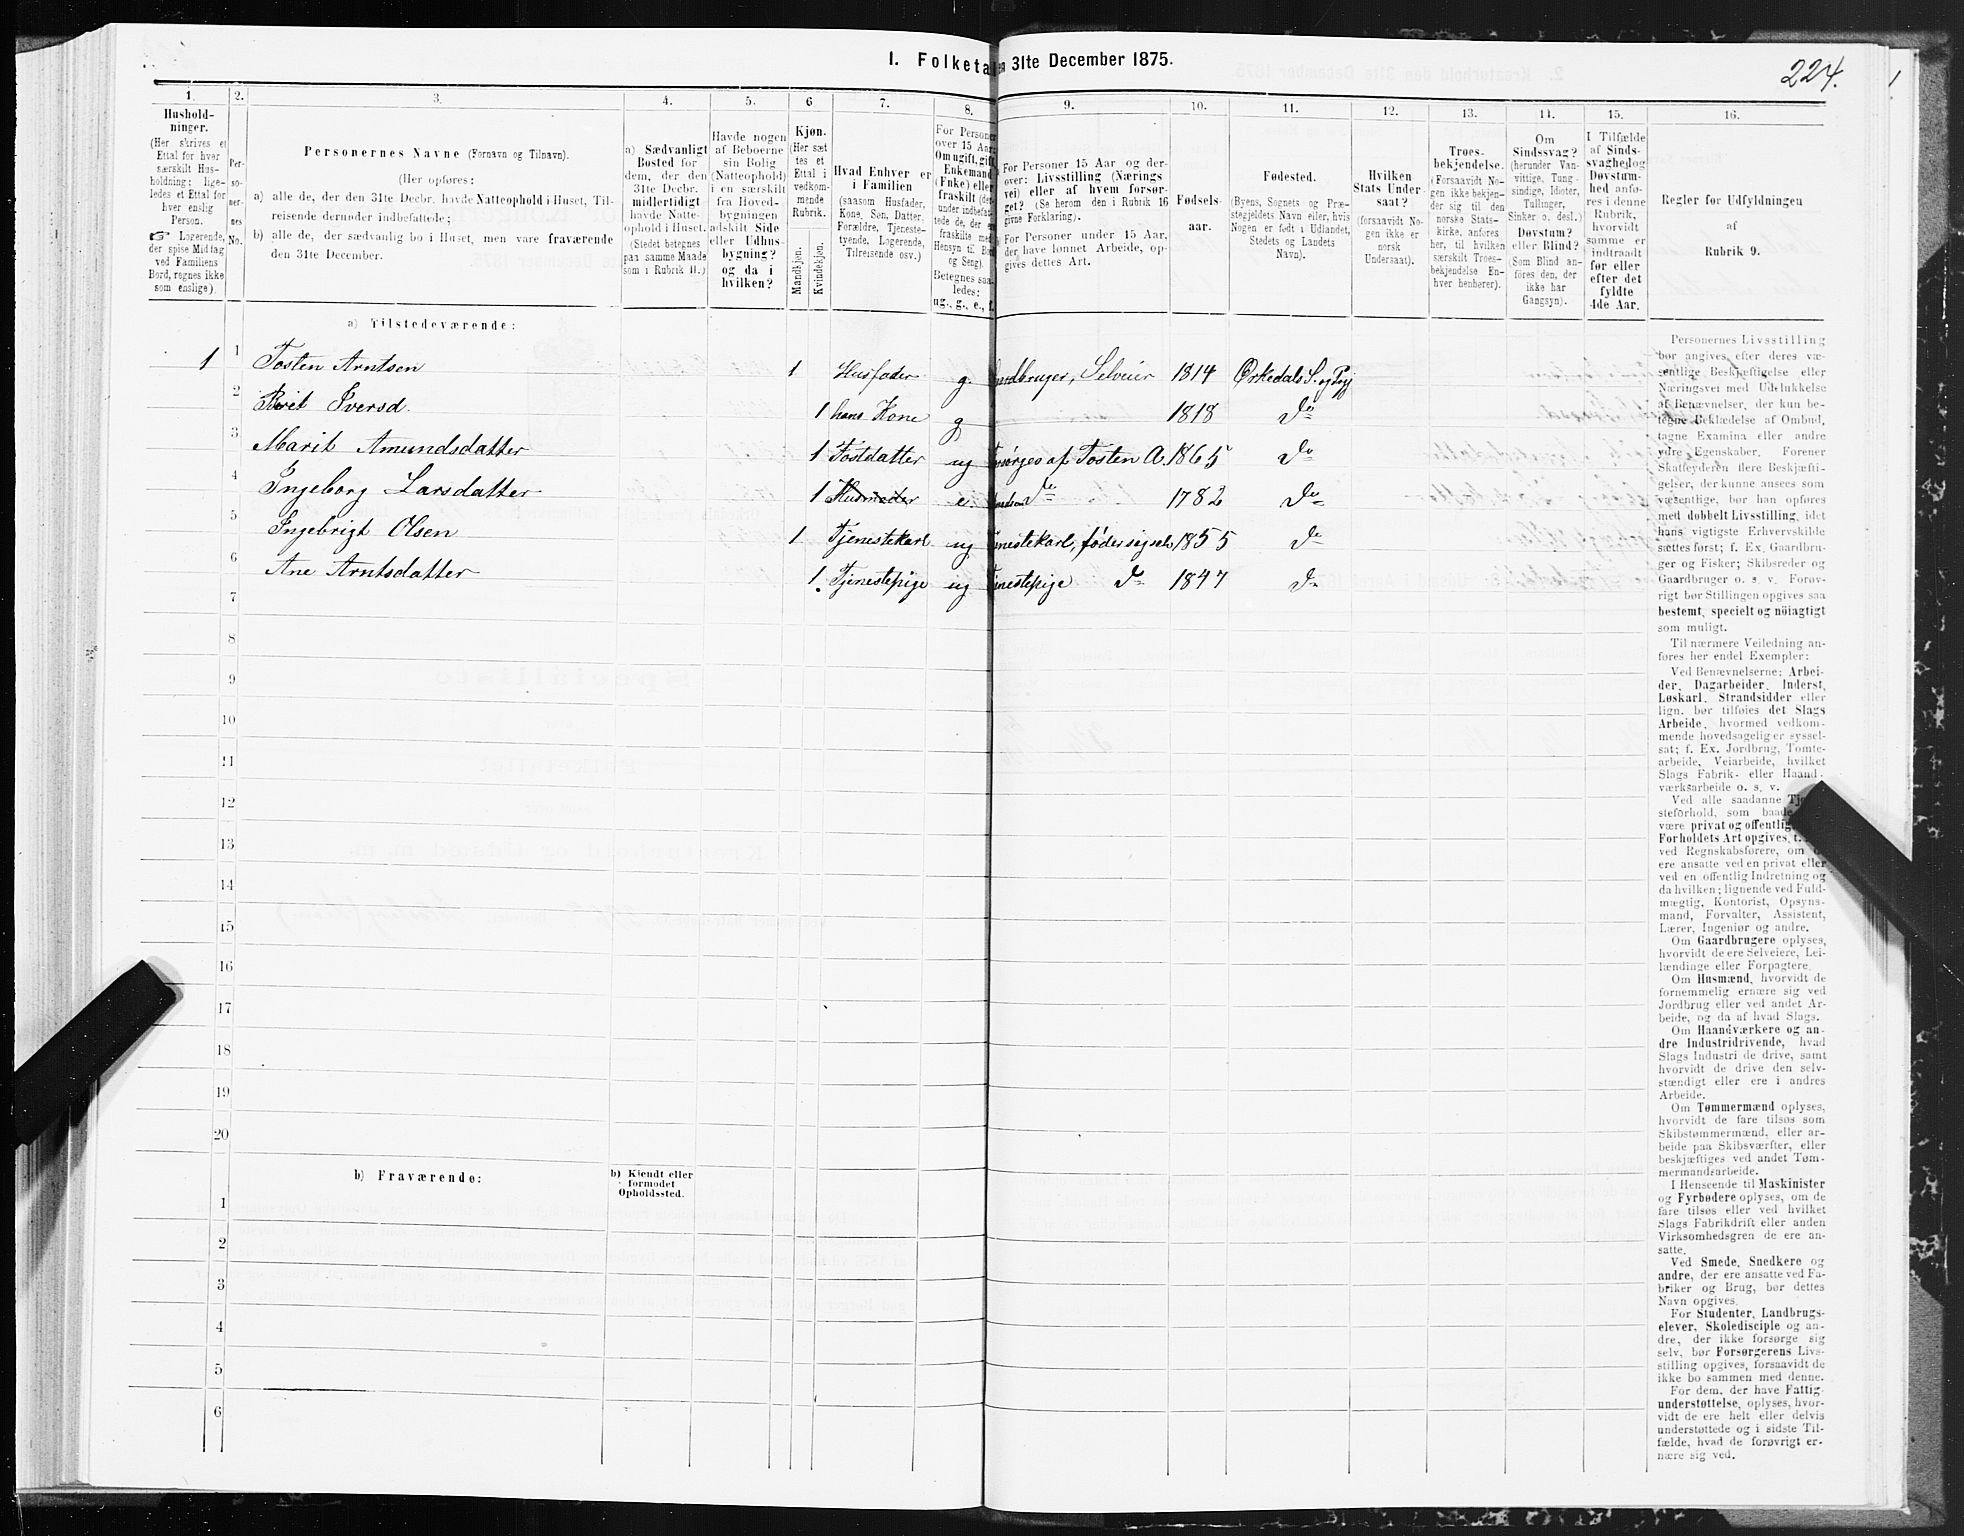 1. Folketal en 31te December 1875.
224.
1. 2. 3. 4. 5. 6 7. 8. 9. 10. 11. 12. 13. 14. 15. 16.
Hushold-
ninger.
(Her skrives et
Ettal for hver
særskilt Hus-
holdning; lige-
ledes et Ettal for
hver enslig
Person.
Logerende,
der spise Middag
ved Familiens
Bord, regnes ikke
som enslige).
Per-
so-
ner-
nes
No.
Personernes Navne (Fornavn og Tilnavn).
(Her opføres:
a) alle de, der den 31te Decbr. havde Natteophold i Huset, Til-
reisende derunder indbefattede;
b) alle de, der sædvanlig bo i Huset, men vare fraværende
den 31te December.
a) Sædvanligt
Bosted for
dem, der den
31te Decbr.
midlertidigt
havde Natte-
ophold i Huset.
(Stedet betegnes
paa samme Maade
som i Rubrik 11.)
Havde nogen
af Beboerne
sin Bolig
(Natteophold)
i en særskilt
fra Hoved-
bygningen
adskilt Side
eller Udhus-
bygning?
og da i
hvilken?
Kjøn.
(Her sæt
tes et
Ettal i
vedkom-
mende
Rubrik.
Mandkjøn.
Kvindekjøn.
Hvad Enhver er
i Familien
(saasom Husfader,
Kone, Søn, Datter,
Forældre, Tjeneste-
tyende, Logerende,
Tilreisende osv.)
For Personer
over 15 Aar:
Om ugift, gift,
Enkemand
(Enke) eller
fraskilt (der-
under indbefat-
tede de, der er
fraskilte med
Hensyn til Bord
og Seng).
Betegnes saa-
ledes:
ug., g., e., f.
For Personer 15 Aar og der-
over: Livsstilling (Nærings
vei) eller af hvem forsør-
get? (Se herom den i Rubrik 16
givne Forklaring).
For Personer under 15 Aar,
der have lønnet Arbeide, op-
gives dettes Art.
Fødsels-
aar.
Fødested.
(Byens, Sognets og Præ-
stegjeldets Navn eller, hvis
Nogen er født i Udlandet,
Stedets og Landets
Navn).
Hvilken
Stats Under-
saat?
(forsaavidt No-
gen ikke er
norsk
Undersaat).
Troes-
bekjendelse.
(Forsaavidt No-
gen ikke bekjen-
der sig til den
norske Stats-
kirke, anføres
her, til hvilken
særskilt Troes-
bekjendelse En-
hver henhører).
Om
Sindssvag?
(herunder Van-
vittige, Tung-
sindige, Idioter,
Tullinger,
Sinker o. desl.)
Døvstum?
eller Blind?
(Som Blind an-
føres den, der
ikke har
Gangsyn).
I Tilfælde
af Sinds-
svaghed og
Døvstum-
hed anfø-
res i denne
Rubrik,
hvorvidt
samme er
indtraadt
før eller
efter det
fyldte
4de Aar.
Regler for Udfyldningen
af
Rubrik 9.
a) Tilstedeværende:
1 1 Tosten Arntsen 1 Husfader g. Selveier 1814 Ørkedals S. og Pgj
2 Beret Iversd. 1 hans Kone g 1818 Do
3 Marit Amundsdatter 1 Fostdatter ug af Tosten A. 1865 Do
4 Ingeborg Larsdatter 1 e. Do 1782 Do
5 Ingebrigt Olsen 1 Tjenestekarl ug 1855 Do
6 Ane Arntsdatter 1. Tjenestepige ug Do 1847 Do
7
8
9
10
11
12
13
14
15
16
17
18
19
20
b) Fraværende:
b) Kjendt eller
formodet
Opholdssted.
1
2
3
4
5
6
Personernes Livsstilling
bør angives efter deres væ-
sentlige Beskjæftigelse eller
Næringsvei med Udelukkelse
af Benævnelser, der kun be-
tegne Beklædelse af Ombud,
tagne Examina eller andre
ydre Egenskaber. Forener
Skatteyderen flere Beskjæfti-
gelser, der kunne ansees som
væsentlige, bør han opføres
med dobbelt Livsstilling, idet
hans vigtigste Erhvervskilde
sættes først; f. Ex. Gaardbru-
ger og Fisker; Skibsreder og
Gaardbruger o. s. v. Forøv-
rigt bør Stillingen opgives saa
bestemt, specielt og nöiagtigt
som muligt.
Til nærmere Veiledning an-
føres her endel Exempler:
Ved Benævnelserne: Arbei-
der, Dagarbeider, Inderst,
Løskarl, Strandsidder eller
lign. bør tilføies det Slags
Arbeide, hvormed vedkom-
mende hovedsagelig er syssel-
sat; f. Ex. Jordbrug, Tomte-
arbeide, Veiarbeide, hvilket
Slags Fabrik- eller Haand-
værksarbeide o. s. v.
Ved alle saadanne
steforhold, som
være privat og
Forholdets Art opgives,
ved Regnskabsførere, om
ere ansatte ved en privat eller
ved en offentlig Indretning og
da hvilken; lignende ved Fuld-
mægtig, Kontorist, Opsyns-
mand, Forvalter, Assistent,
Lærer, Ingeniør og andre.
Om Gaardbrugere oplyses,
hvorvidt de ere Selveiere, Lei-
lændinge eller Forpagtere.
Om Husmænd, hvorvidt de
fornemmelig ernære sig ved
Jordbrug eller ved andet Ar-
beide, og da af hvad Slags.
Om Haandværkere og an-
dre Industridrivende, hvad
Slags Industri de drive, samt
hvorvidt de drive den selv-
stændigt eller ere i andres
Arbeide.
Om Tømmermænd oplyses,
hvorvidt de fare tilsøs som
Skibstømmermænd, eller ar-
beide paa Skibsværfter, eller
beskjæftiges ved andet Tøm-
mermandsarbeide.
I Henseende til Maskinister
og Fyrbødere oplyses, om de
fare tilsøs eller ved hvilket
Slags Fabrikdrift eller anden
Virksomhedsgren de ere an-
satte.
Ved Smede, Snedkere og
andre, der ere ansatte ved Fa-
briker og Brug, bør dettes
Navn opgives.
For Studenter, Landbrugs-
elever, Skoledisciple og an-
dre, der ikke forsørge sig
selv, bør Forsørgerens Livs-
stilling opgives, forsaavidt de
ikke bo sammen med denne.
For dem, der have Fattig-
understøttelse, oplyses, hvor-
vidt de ere helt eller delvis
understøttede og i sidste Til-
fælde, hvad de forøvrigt er-
nære sig ved.